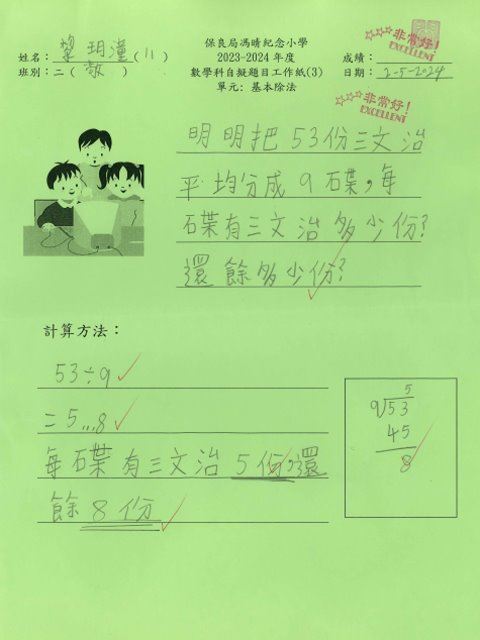 保良局馮晴紀念小學
姓名：黎玥潼(11)
2023-2024 年度
成績：
班別：二(敬)
數學科自擬題目工作紙(3)
日期：2-5-2024
單元：基本除法
非常好!
EXCELLENT
非常好!
EXCELLENT
明明把53份三文治
平均分成9碟，每
碟有三文治多少份?
還餘多少份?
計算方法：
53÷9
=5...8
每碟有三文治5份，還
餘8份
5
9 53
45
8